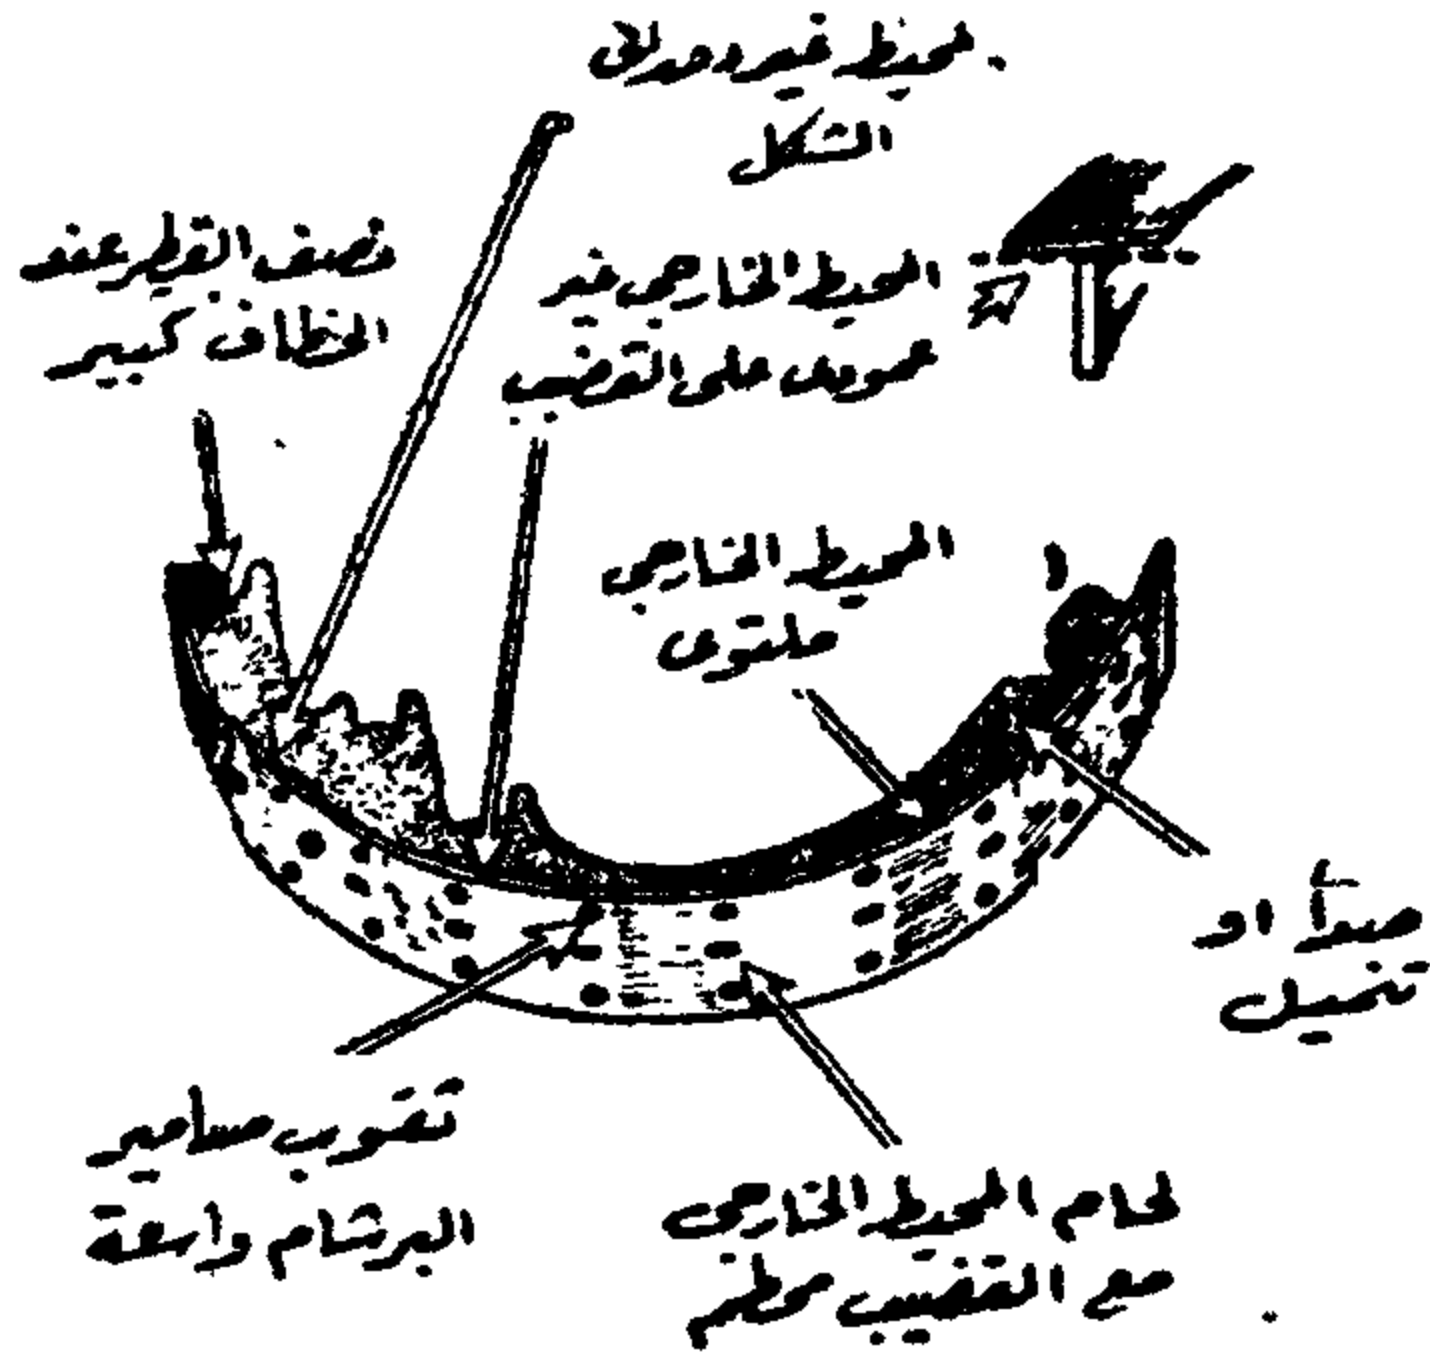 محيط غير دائرى
الشكل
نصف القطر عند
الخطاف كبير
المحيط الخارجى غير
عمودى على القضيب
المحيط الخارجى
ملتوى
صدأ او
تنميل
ثقوب مسامير
البرشام واسعة
لحام المحيط الخارجى
مع القضيب محطم